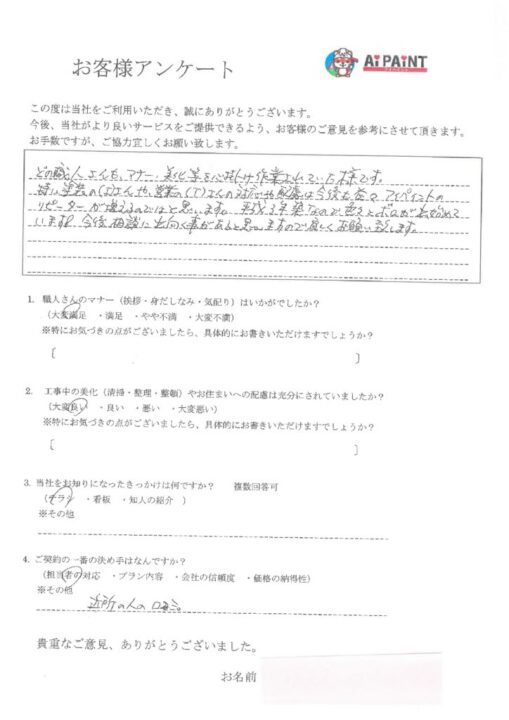 お客様アンケート
Ai PAINT
この度は当社をご利用いただき、誠にありがとうございます。
今後、当社がより良いサービスをご提供できるよう、お客様のご意見を参考にさせて頂きます。
お手数ですが、ご協力宜しくお願い致します。
どの職人さんも、マナー、美化等を心掛け作業をしていた様です。
特に塗装の(S)さんや、営業の(T)さんの対応や配慮は今後も益々アイペイントの
リピーターが増えるのではと思います。平成3年築なので色々とボロが出始めて
いますので今後相談に出向く事があると思いますので宜しくお願い致します。
1. 職人さんのマナー（挨拶・身だしなみ・気配り）はいかがでしたか？
（大変満足 ・満足 ・やや不満 ・大変不満）
※特にお気づきの点がございましたら、具体的にお書きいただけますでしょうか？
［ ］
2. 工事中の美化（清掃・整理・整頓）やお住まいへの配慮は充分にされていましたか？
（大変良い ・良い ・悪い ・大変悪い）
※特にお気づきの点がございましたら、具体的にお書きいただけますでしょうか？
［ ］
3. 当社をお知りになったきっかけは何ですか？ 複数回答可
（チラシ ・看板 ・知人の紹介 ）
※その他
4. ご契約の一番の決め手はなんですか？
（担当者の対応 ・プラン内容 ・会社の信頼度 ・価格の納得性）
※その他
近所の人の口コミ
貴重なご意見、ありがとうございました。
お名前